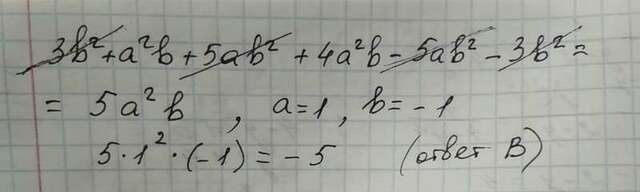 3b² + a²b + 5ab² + 4a²b - 5ab² - 3b² =
= 5a²b , a=1, b=-1
5·1²·(-1) = -5 (ответ В)